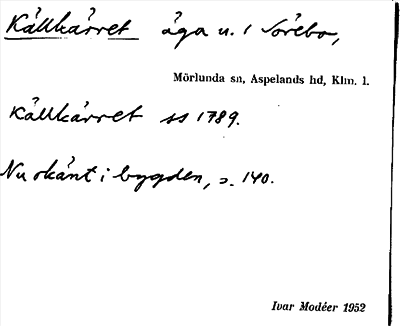 Källkärret äga u. 1 Sörebo,
Mörlunda sn, Aspelands hd, Klm. l.
Källkärret ss 1789.
Nu okänt i bygden, s. 140.
Ivar Modéer 1952